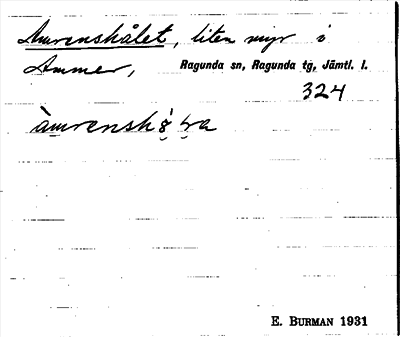 Amrenshålet, liten myr i
Ammer, Ragunda sn, Ragunda tg, Jämtl. l.
324
E. BURMAN 1931